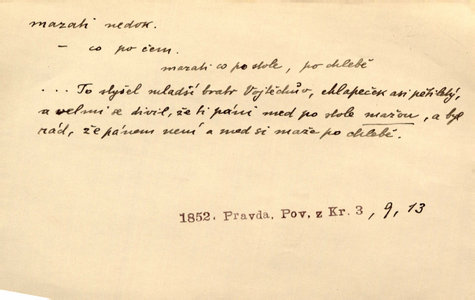 mazati nedok.
– co po čem.
mazati co po stole, po chlebě
... To slyšel mladší bratr Vojtěchův, chlapeček asi pětiletý,
a velmi se divil, že ti páni med po stole mažou, a byl
rád, že pánem není a med si maže po chlebě.
1852. Pravda, Pov. z Kr. 3, 9, 13